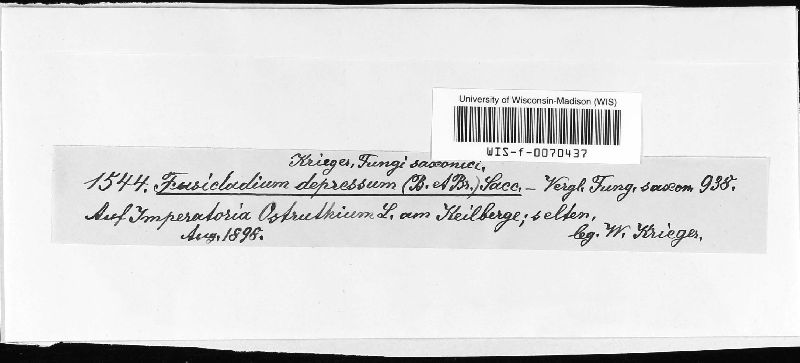 University of Wisconsin-Madison (WIS)
WIS-f-0070437
Krieger, Fungi saxonici.
1544. Fusicladium depressum (B. et Br.) Sacc. – Vergl. Fung. saxon. 938.
Auf Imperatoria Ostruthium L. am Keilberge; selten.
Aug. 1898.
leg. W. Krieger.